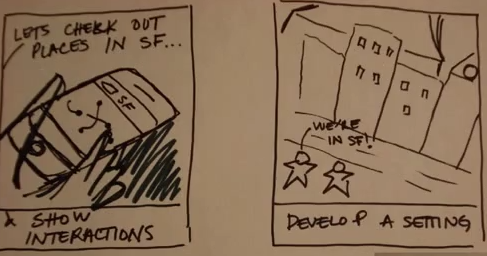 LETS CHECK OUT
PLACES IN SF...
SF
SHOW
INTERACTIONS
WE'RE
IN SF!
DEVELOP A SETTING